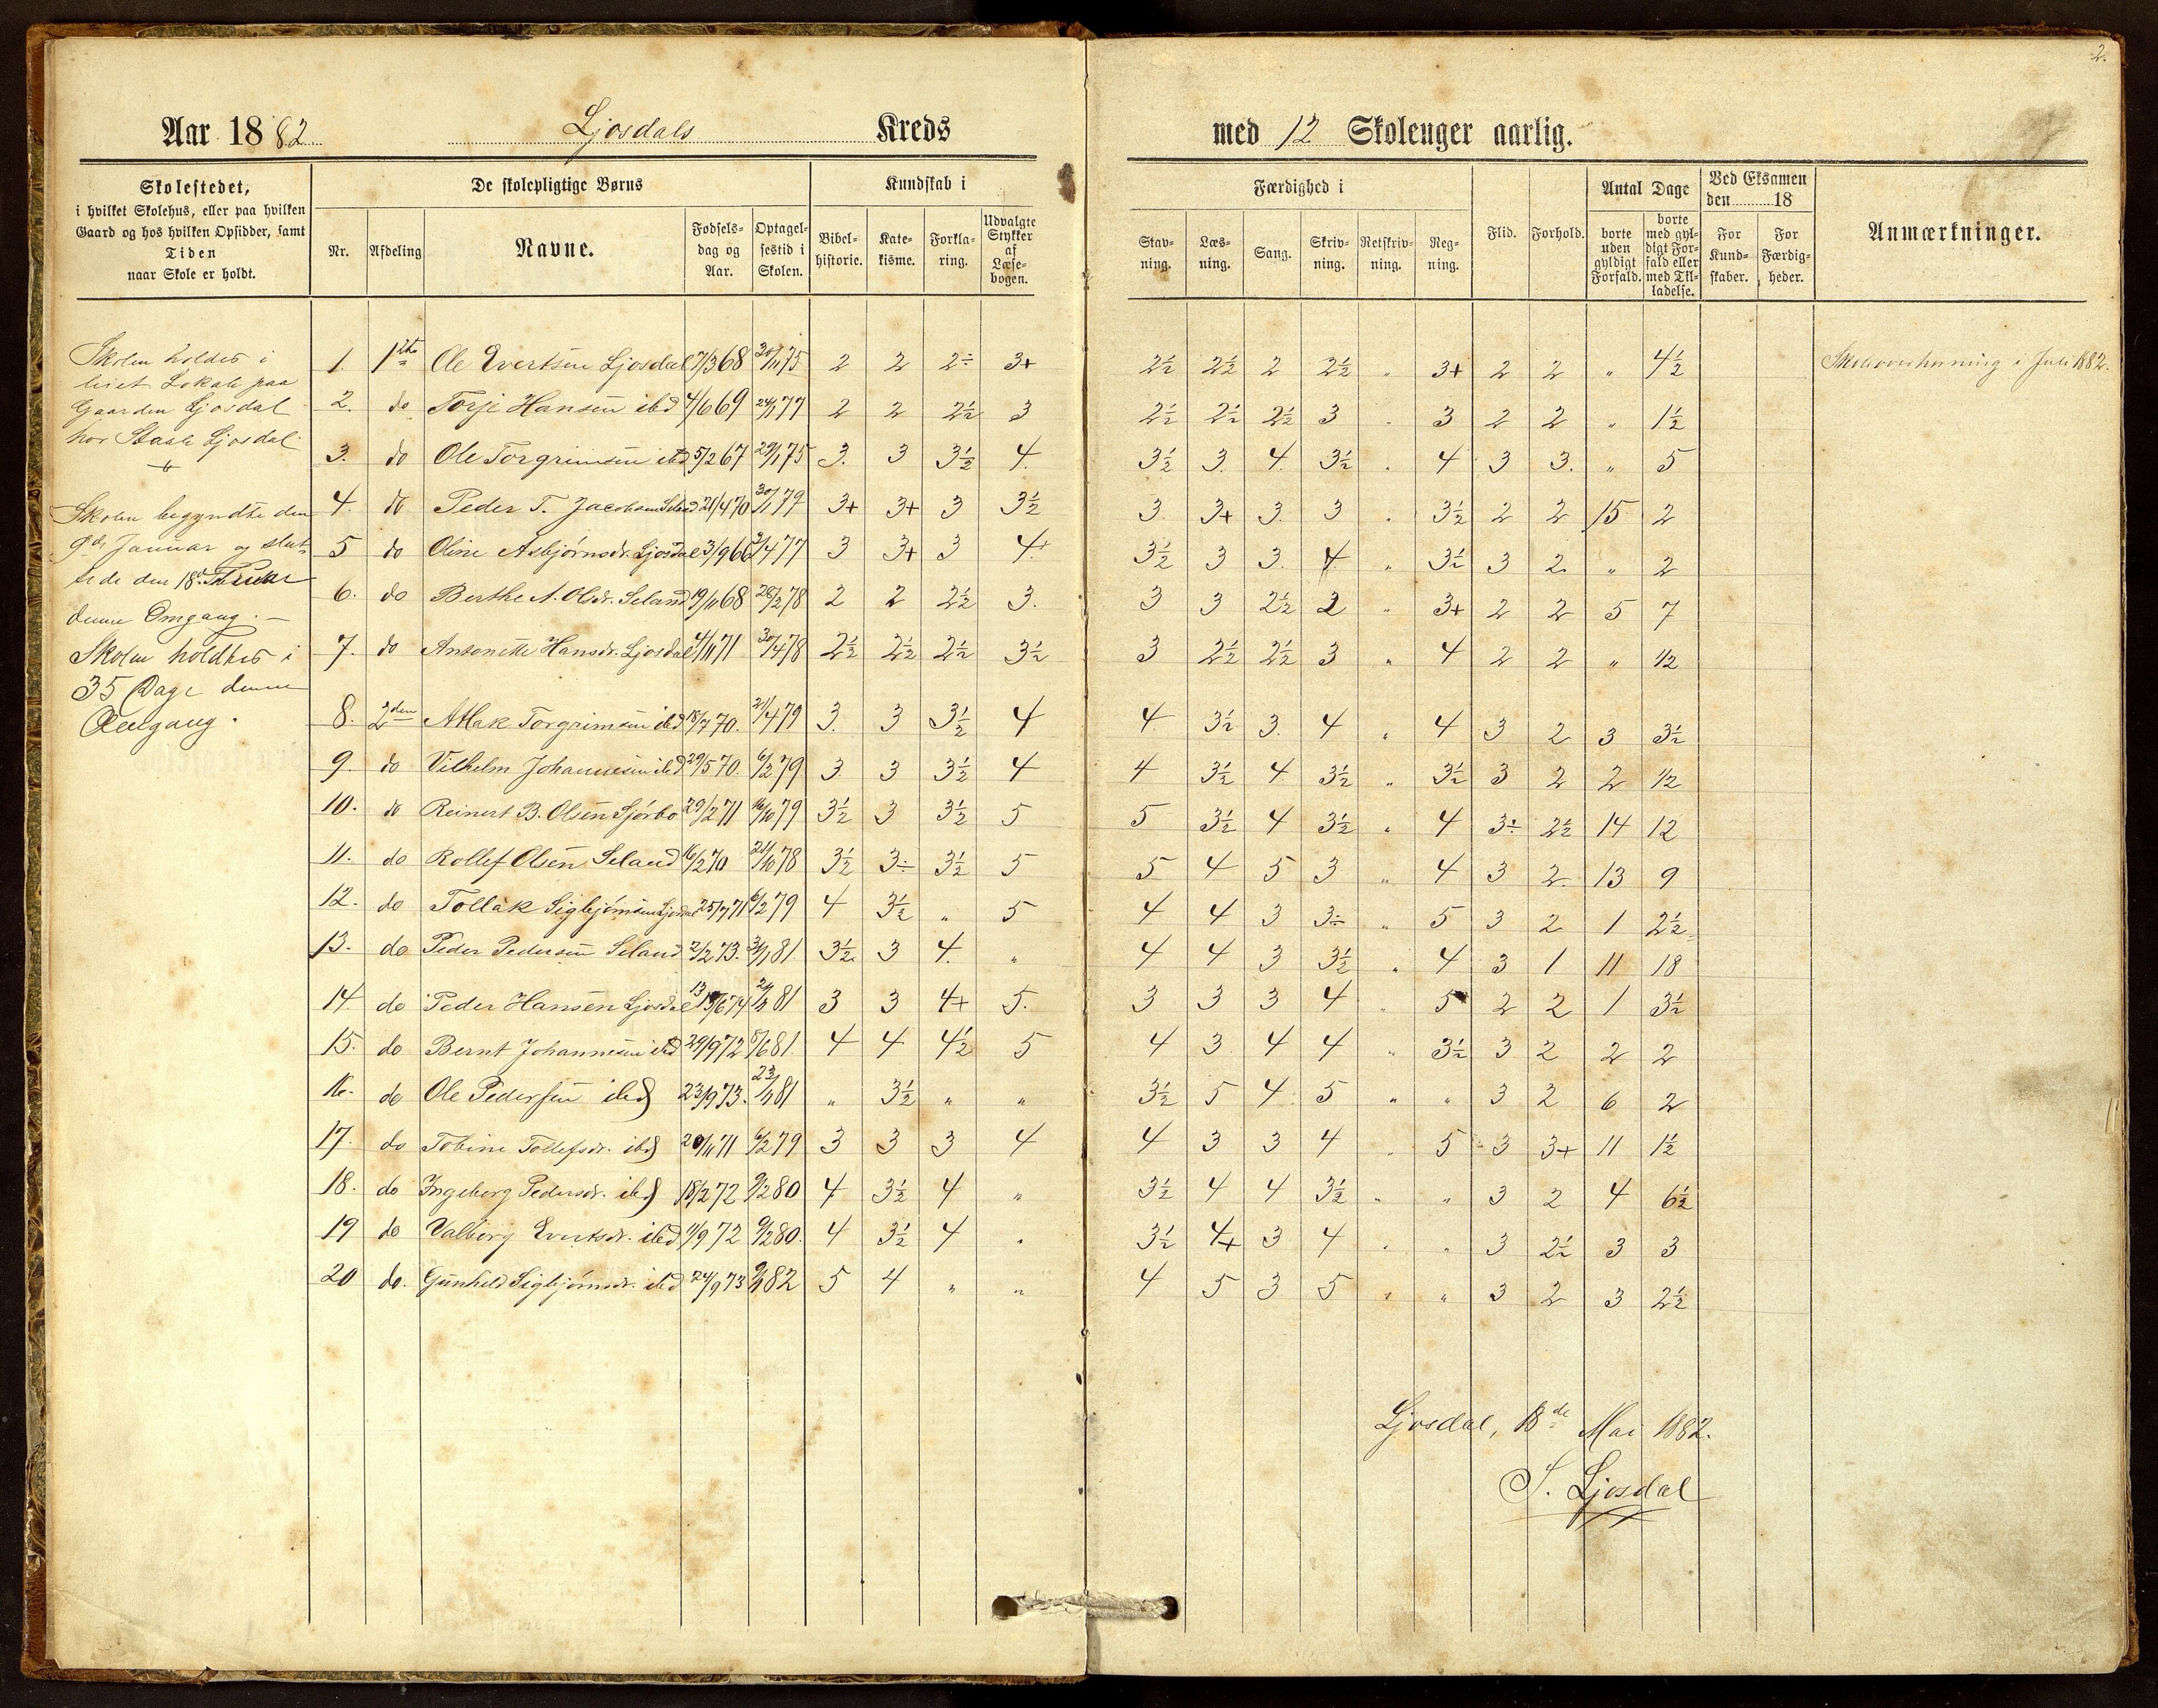 2.
Aar 1882 Ljosdals Kreds med 12 Skoleuger aarlig.
Skolestedet,
i hvilket Skolehus, eller paa hvilken
Gaard og hos hvilken Opsidder, samt
Tiden
naar Skole er holdt.
De skolepligtige Børns
Nr. Afdeling Navne. Fødsels-dag og Aar. Optagel-sestid i Skolen.
Kundskab i
Bibel-historie. Kate-kisme. Forkla-ring. Udvalgte Stykker af Læse-bogen.
Færdighed i
Stav-ning. Læs-ning. Sang. Skriv-ning. Retskriv-ning. Reg-ning.
Flid. Forhold.
Antal Dage
borte uden gyldigt Forfald. borte med gyl-digt For-fald eller med Til-ladelse.
Ved Eksamen
den 18
For Kund-skaber. For Færdig-heder.
Anmærkninger.
Skolen holdes i
leiet Lokale paa
Gaarden Ljosdal
hos Ljosdal
Skolen begyndte den
9de Januar og slut-
tede den 18de
denne Omgang. –
Skolen holdtes i
35 Dage denne
Omgang.
1. 1ste Ole Evertsen Ljosdal 7/3 68 30/11 75 2 2 2÷ 3+ 2½ 2½ 2 2½ " 3+ 2 2 " 4½ i Juli 1882.
2. do Torje Hansen ibd 4/6 69 24/1 77 2 2 2½ 3 2½ 2½ 2½ 3 " 3 2 2 " 1½
3. do Ole Torgrimsen ibd 5/2 67 29/1 75 3. 3 3½ 4. 3½ 3. 4. 3½ " 4 3 3. " 5
4. do Peder T. Jacobsen Seland 21/4 70 30/1 79 3+ 3+ 3 3½ 3 3+ 3. 3 " 3½ 2 2 15 2
5 do Oline Asbjørnsdr. Ljosdal 3/9 66 2/4 77 3 3+ 3 4. 3½ 3 3. 4 " 3½ 3 2. " 2
6. do Berthe A. Olsdr. Seland 19/11 68 26/2 78 2 2 2½ 3. 3 3 2½ 2 " 3+ 2 2 5 7
7. do Antonette Hansdr. Ljosdal 4/11 71 30/4 78 2½ 2½ 2½ 3½ 3 2½ 2½ 3 " 4 2 2 " ½
8. 2den Atlak Torgrimsen ibd 18/7 70. 21/4 79 3. 3 3½ 4 4. 3½ 3. 4 " 4 3 2 3 3½
9. do Vilhelm Johannesen ibd 29/5 70. 6/2 79 3. 3 3½ 4 4 3½ 4 3½ " 3½ 3 2 2 ½
10. do Reinert B. Olsen Sjörbo 29/2 71 16/10 79 3½ 3 3½ 5 5 3½ 4 3½ " 4 3÷ 2½ 14 12
11. do Rollef Olsen Seland 16/2 70 21/10 78 3½ 3÷ 3½ 5 5 4 5 3 " 4 3 2. 13 9
12. do Tollak Sigbjörnsen Ljosdal 25/7 71 6/2 79 4 3½ " 5 4 4 3 3÷ " 5 3 2 1 2½
13. do Peder Pedersen Seland 2/2 73. 31/1 81 3½ 3 4. " 4 4 3 3½ " 4 3 1 11 18
14. do Peder Hansen Ljosdal 13/6 74 81 3 3 4+ 5. 3 3 3 4 " 5 2 2 1 3½
15. do Bernt Johannesen ibd 29/9 72 8/6 81. 4 4 4½ 5 4 3 4 4 " 3½ 3 2 2 2
16. do Ole Pedersen ibd 23/9 73. 23/1 81 " 3½ " " 3½ 5 4 5 " " 3 2 6 2
17. do Tobine Tollefsdr. ibd 20/11 71 6/2 79 3 3 3 4 4 3 3 4 " 5 3 3+ 11 1½
18. do Ingeborg Pedersdr. ibd 18/2 72 9/2 80 4 3½ 4 " 3½ 4 4 3½ " " 3 2 4 6½
19 do Valborg Evertsdr. ibd 11/9 72 9/2 80. 4 3½ 4 " 3½ 4+ 3 4 " " 3 2½ 3 3
20 do. Gunhild Sigbjörnsdr. ibd 24/9 73 9/1 82 5 4 " " 4 5 3 5 " " 3 2 3 2½
Ljosdal, 18de Mai 1882.
S. Ljosdal